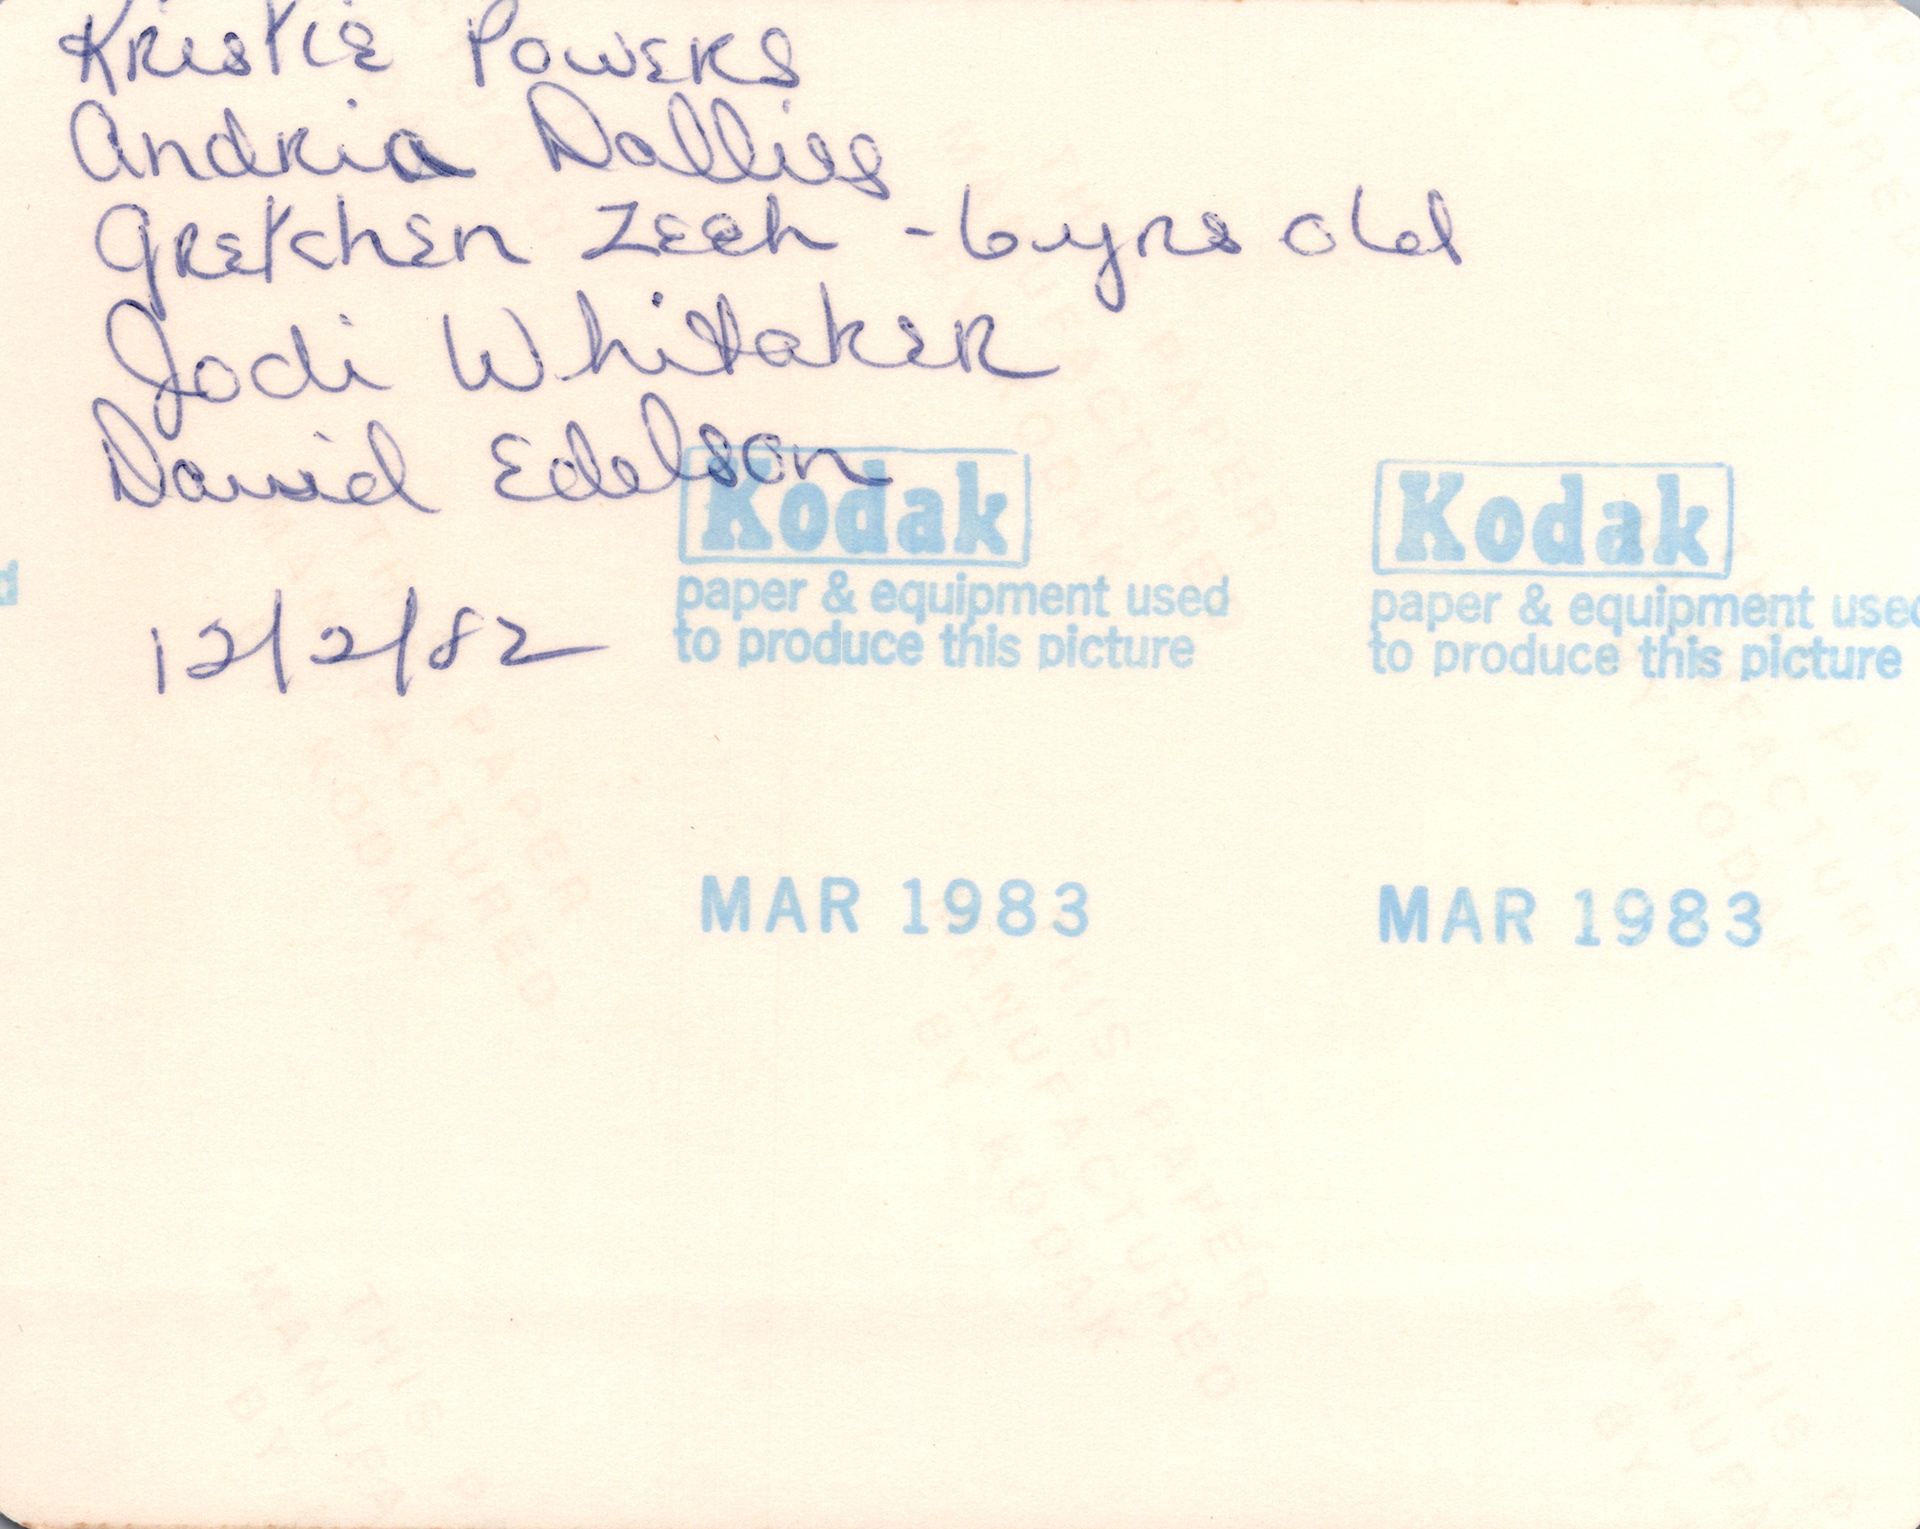 Kristie Powers
Andria Dallies
Gretchen Zeeh - 6 yrs old
Jodi Whitaker
David Edelson
12/2/82
Kodak
paper & equipment used
to produce this picture
Kodak
paper & equipment used
to produce this picture
MAR 1983
MAR 1983
THIS PAPER
MANUFACTURED
BY KODAK